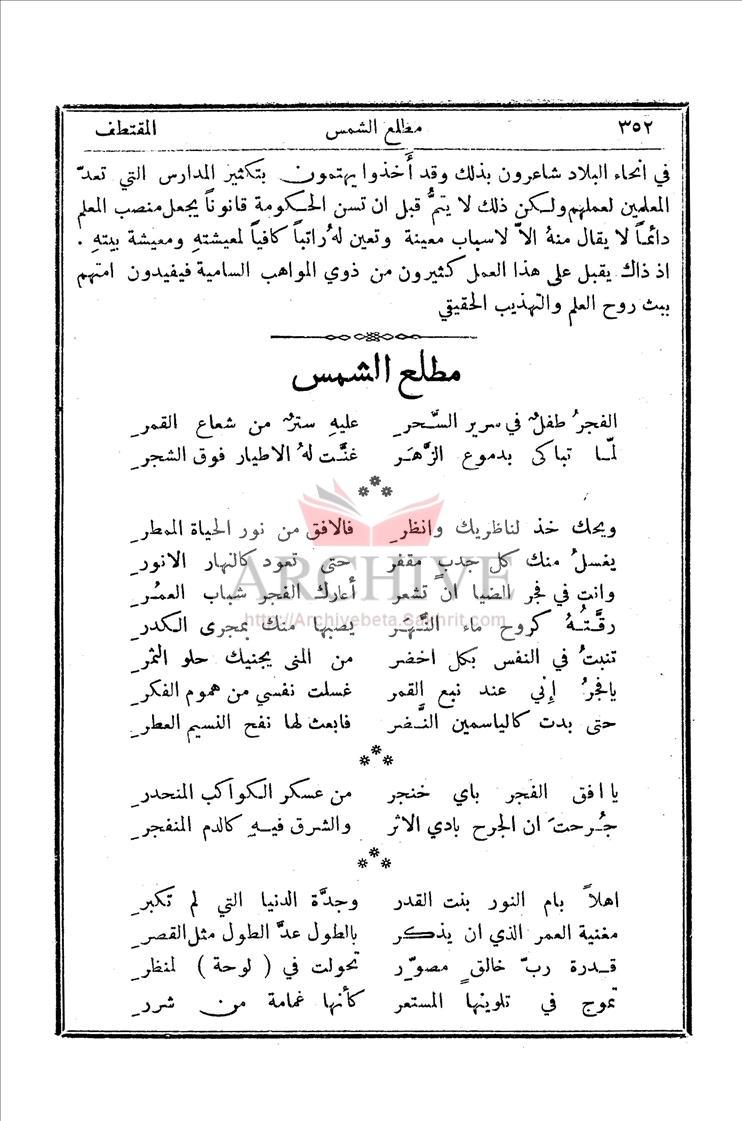 ٣٥٢ مطلع الشمس المقتطف
في انحاء البلاد شاعرون بذلك وقد أَخذوا يهتمون بتكثير المدارس التي تعدّ
المعلمين لعملهم ولكن ذلك لا يتمُّ قبل ان تسن الحكومة قانوناً يجعل منصب المعلم
دائماً لا يقال منهُ الاّ لاسباب معينة وتعين لهُ راتباً كافياً لمعيشتهِ ومعيشة بيتهِ .
اذ ذاك يقبل على هذا العمل كثيرون من ذوي المواهب السامية فيفيدون امتهم
ببث روح العلم والتهذيب الحقيقي
مطلع الشمس
الفجرُ طفلٌ في سرير السَّحرِ عليهِ سترٌ من شعاع القمرِ
لمّا تباكى بدموع الزَّهَرِ غنَّت لهُ الاطيار فوق الشجرِ
ويحك خذ لناظريك وانظرِ فالافق من نور الحياة الممطرِ
يغسلُ منك كل جدبٍ مقفر حتى تعود كالنهار الانورِ
وانت في فجر الضيا ان تشعر أعارك الفجر شباب العمُرِ
رقَّتُهُ كروح ماء النَّهَرِ يصبها منك بمجرى الكدرِ
تنبتُ في النفس بكل اخضر من المنى يجنيك حلو الثمرِ
يا فجرُ إِني عند نبع القمر غسلت نفسي من هموم الفكرِ
حتى بدت كالياسمين النَّضر فابعث لها نفح النسيم العطرِ
يا افق الفجر باي خنجر من عسكر الكواكب المنحدرِ
جُرحتَ ان الجرح بادي الاثر والشرق فيهِ كالدم المنفجرِ
اهلاً بام النور بنت القدر وجدَّة الدنيا التي لم تكبرِ
مغنية العمر الذي ان يذكر بالطول عدَّ الطول مثل القصرِ
قدرة ربّ خالقٍ مصوّرِ تحولت في ( لوحة ) لمنظرِ
تموج في تلوينها المستعر كأنها غمامة من شررِ
ARCHIVE
http://Archivebeta.Sakhrit.com